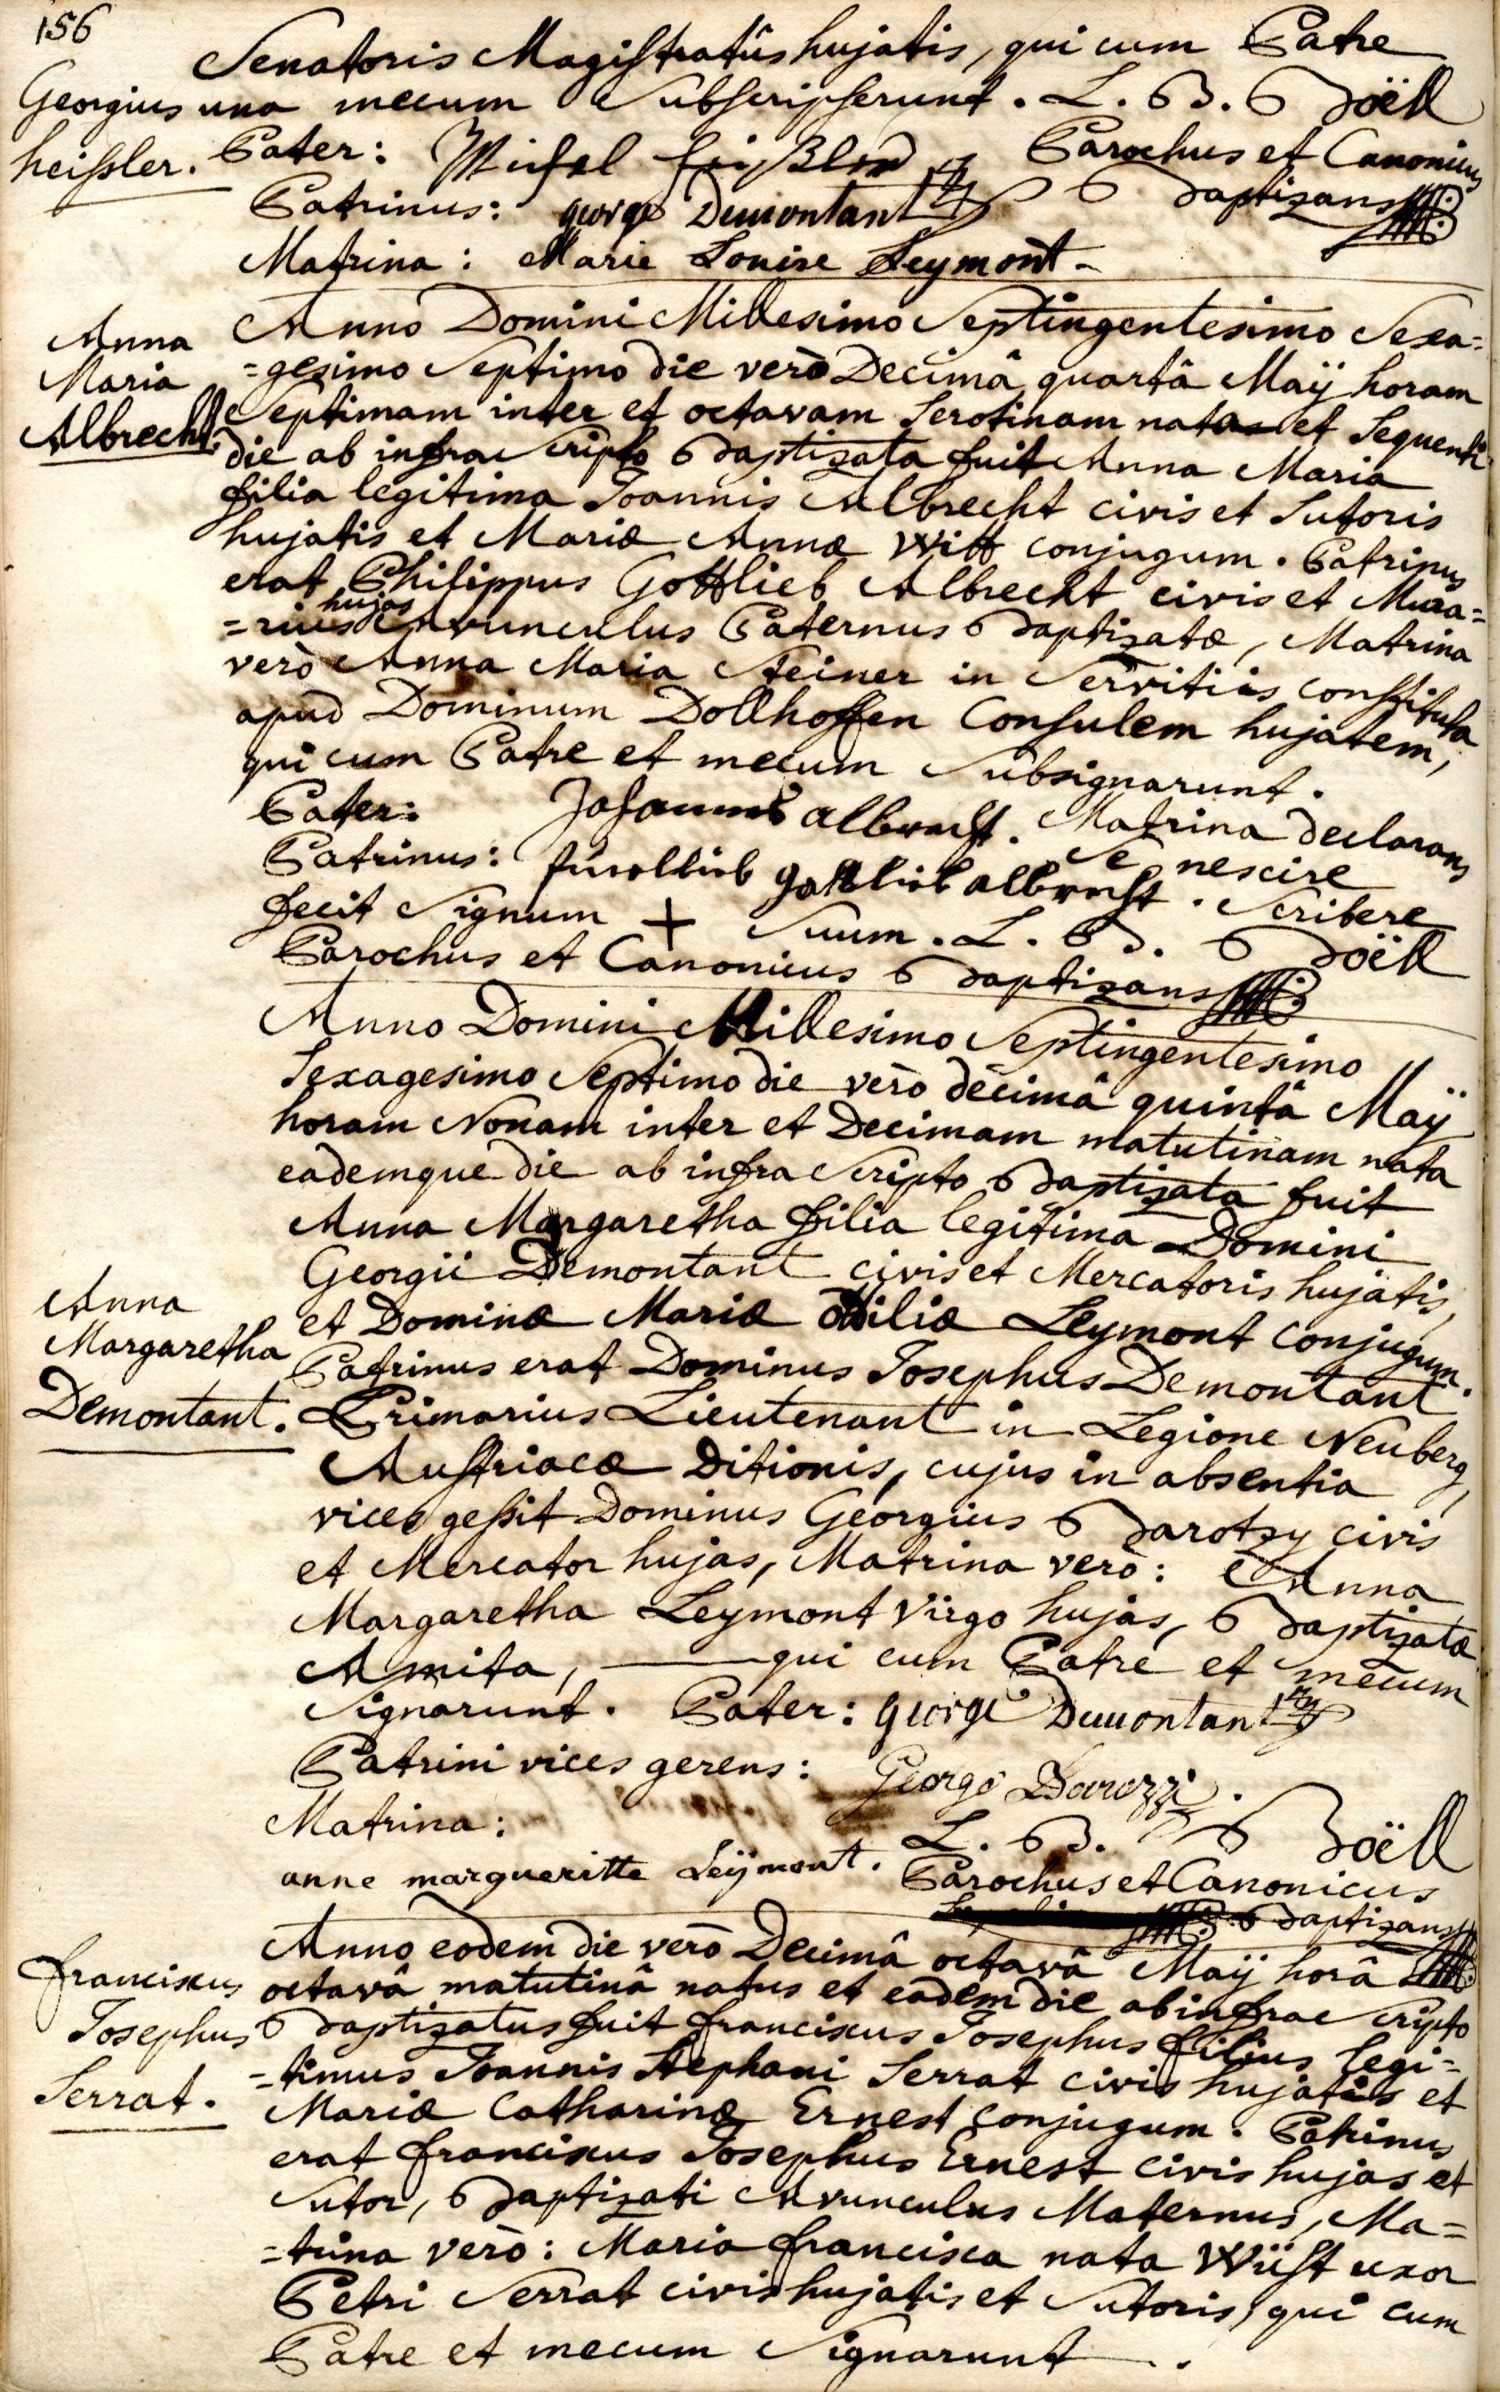 156
Senatoris Magistratûs hujatis, qui cum Patre
Georgius
heissler.
una mecum Subscripserunt. L. B. Boëll
Pater: Michel heißler Parochus et Canonicus
Patrinus: george Demontant Baptizans
Matrina: Marie Louise Leymont-
Anna
Maria
Albrecht.
Anno Domini Millesimo Septingentesimo Sexa=
=gesimo Septimo die verò Decimâ quartâ Maÿ horam
Septimam inter et octavam Serotinam nata et Sequenti
die ab infra Scripto Baptizata fuit Anna Maria
filia legitima Joannis Albrecht civis et Sutoris
hujatis et Mariæ Annæ Witt conjugum. Patrinus
erat Philippus Gottlieb Albrecht civis et Mura=
=rius hujas Avunculus Paternus Baptizatæ, Matrina
verò Anna Maria Steiner in Servitiis constituta
apud Dominum Dollhoffen Consulem hujatem,
qui cum Patre et mecum Subsignarunt.
Pater: Johannes albrecht. Matrina declarans
Patrinus: gottlieb albrecht. Se nescire Scribere
fecit Signum + Suum. L. B. Boëll
Parochus et Canonicus Baptizans
Anno Domini Millesimo Septingentesimo
Sexagesimo Septimo die verò decimâ quintâ Maÿ
horam Nonam inter et Decimam matutinam nata
eademque die ab infra Scripto Baptizata fuit
Anna Margaretha filia legitima Domini
Georgii Demontant civis et Mercatoris hujatis,
Anna
Margaretha
Demontant.
et Dominæ Mariæ Ottiliæ Leymont conjugum.
Patrinus erat Dominus Josephus Demontant
Primarius Lieutenant in Legione Neuberg,
Austriacæ Ditionis, cujus in absentia
vices gessit Dominus Georgius Barotzy civis
et Mercator hujas, Matrina verò: Anna
Margaretha Leymont Virgo hujas, Baptizatæ
Amita, qui cum Patre et mecum
Signarunt. Pater: george Demontant
Patrini vices gerens: George Barozzi.
Matrina: L. B. Boëll
anne margueritte Leÿmont. Parochus et Canonicus
Baptizans
Franciscus
Josephus
Serrat.
Anno eodem die verò Decimâ octavâ Maÿ horâ
octavâ matutinâ natus et eadem die ab infra Scripto
Baptizatus fuit Franciscus Josephus filius legi=
=timus Joannis Stephani Serrat civis hujatis et
Mariæ Catharinæ Ernest conjugum. Patrinus
erat Franciscus Josephus Ernest civis hujas et
Sutor, Baptizati Avunculus Maternus, Ma=
=trina verò: Maria Francisca nata Wüst uxor
Petri Serrat civis hujatis et Sutoris, qui cum
Patre et mecum Signarunt.